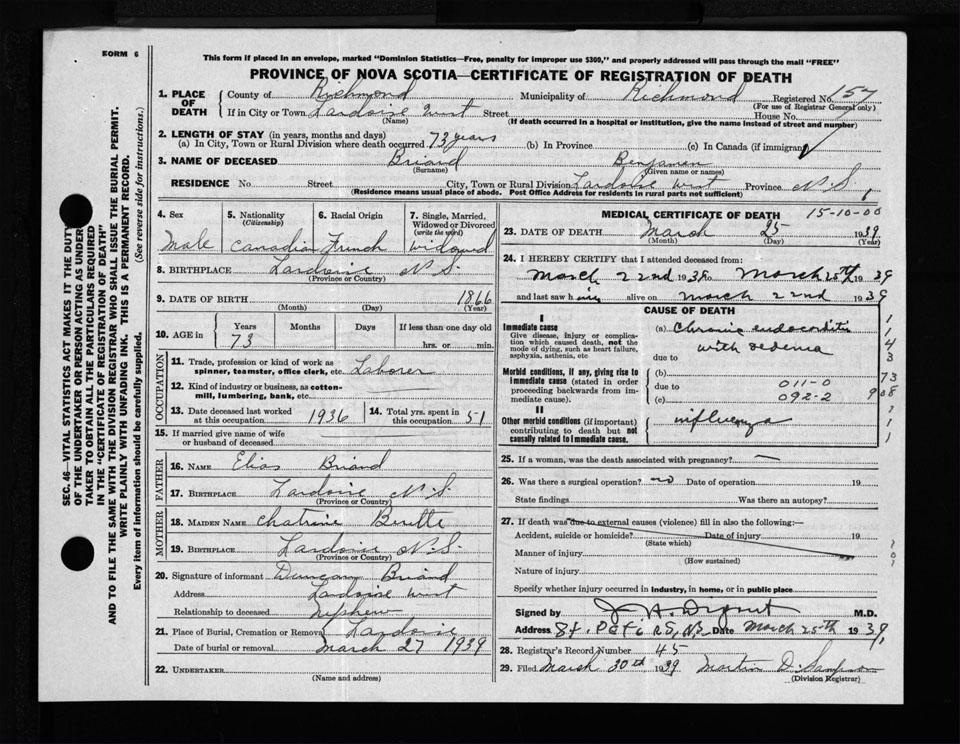 FORM 6
This form if placed in an envelope, marked "Dominion Statistics—Free, penalty for improper use $300," and properly addressed will pass through the mail "FREE"
PROVINCE OF NOVA SCOTIA—CERTIFICATE OF REGISTRATION OF DEATH
1. PLACE OF DEATH { County of Richmond Municipality of Richmond Registered No. 157
(For use of Registrar General only)
If in City or Town Lardoise West Street House No.
(Name) (If death occurred in a hospital or institution, give the name instead of street and number)
2. LENGTH OF STAY (in years, months and days)
(a) In City, Town or Rural Division where death occurred 73 years (b) In Province (c) In Canada (if immigrant)
3. NAME OF DECEASED Briand Benjamen
(Surname) (Given name or names)
RESIDENCE No. Street City, Town or Rural Division Lardoise West Province N.S.
(Residence means usual place of abode. Post Office Address for residents in rural parts not sufficient)
4. Sex Male
5. Nationality (Citizenship) Canadian
6. Racial Origin French
7. Single, Married, Widowed or Divorced (write the word) Widowed
8. BIRTHPLACE Lardoise N.S.
(Province or Country)
9. DATE OF BIRTH 1866
(Month) (Day) (Year)
10. AGE in { Years Months Days If less than one day old
73 hrs. or min.
OCCUPATION
11. Trade, profession or kind of work as spinner, teamster, office clerk, etc. Laborer
12. Kind of industry or business, as cotton-mill, lumbering, bank, etc.
13. Date deceased last worked at this occupation 1936
14. Total yrs. spent in this occupation 51
15. If married give name of wife or husband of deceased
FATHER
16. NAME Elias Briand
17. BIRTHPLACE Lardoise N.S.
(Province or Country)
MOTHER
18. MAIDEN NAME Chatrine
19. BIRTHPLACE Lardoise N.S.
(Province or Country)
20. Signature of informant Duncan Briand
Address Lardoise West
Relationship to deceased Nephew
21. Place of Burial, Cremation or Removal Lardoise
Date of burial or removal March 27 1939
22. UNDERTAKER
(Name and address)
MEDICAL CERTIFICATE OF DEATH 15-10-00
23. DATE OF DEATH March 25 1939
(Month) (Day) (Year)
24. I HEREBY CERTIFY that I attended deceased from:
March 22nd 193 to March 25th 1939
and last saw h im alive on March 22nd 1939
CAUSE OF DEATH
I
Immediate cause
Give disease, injury or complication which caused death, not the mode of dying, such as heart failure, asphyxia, asthenia, etc
(a) Chronic endocorditis
with oedema
due to
Morbid conditions, if any, giving rise to immediate cause (stated in order proceeding backwards from immediate cause).
(b)
due to 011-0
(c) 092-2
II
Other morbid conditions (if important) contributing to death but not causally related to immediate cause.
influenza
25. If a woman, was the death associated with pregnancy? —
26. Was there a surgical operation? no Date of operation 19
State findings Was there an autopsy?
27. If death was due to external causes (violence) fill in also the following:—
Accident, suicide or homicide? Date of injury 19
(State which)
Manner of injury
(How sustained)
Nature of injury
Specify whether injury occurred in industry, in home, or in public place
Signed by M.D.
Address St. Peters, N.S. Date March 25th 1939
28. Registrar's Record Number 45
29. Filed March 30th 1939 Martin D. Sampson
(Division Registrar)
SEC. 46—VITAL STATISTICS ACT MAKES IT THE DUTY
OF THE UNDERTAKER OR PERSON ACTING AS UNDER-
TAKER TO OBTAIN ALL THE PARTICULARS REQUIRED
IN THE "CERTIFICATE OF REGISTRATION OF DEATH"
AND TO FILE THE SAME WITH THE DIVISION REGISTRAR WHO SHALL ISSUE THE BURIAL PERMIT.
WRITE PLAINLY WITH UNFADING INK. THIS IS A PERMANENT RECORD.
Every item of information should be carefully supplied. (See reverse side for instructions.)